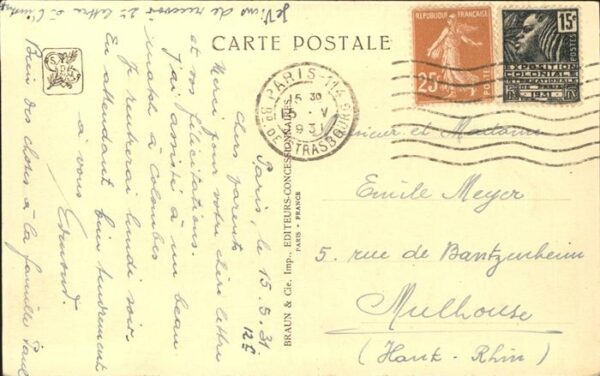 CARTE POSTALE
Je viens de recevoir 2e lettre à l'instant
Paris, le 15.5.31
12E
chers parents
Merci pour votre chère lettre
et vos félicitations.
J'ai assisté à un beau
match à Colombes
Je rentrerai lundi soir.
En attendant bien tendrement
à vous
Edmond.
Bien des choses à la famille Paul
BRAUN & Cie, Imp., EDITEURS-CONCESSIONNAIRES
PARIS - FRANCE
RÉPUBLIQUE FRANÇAISE
25c
POSTES
15c
POSTES
EXPOSITION
COLONIALE
PARIS-114
15 30
15 · V
1931
Bd DE STRASBOURG
Monsieur et Madame
Emile Meyer
5 rue de Bantzenheim
Mulhouse
(Haut-Rhin)